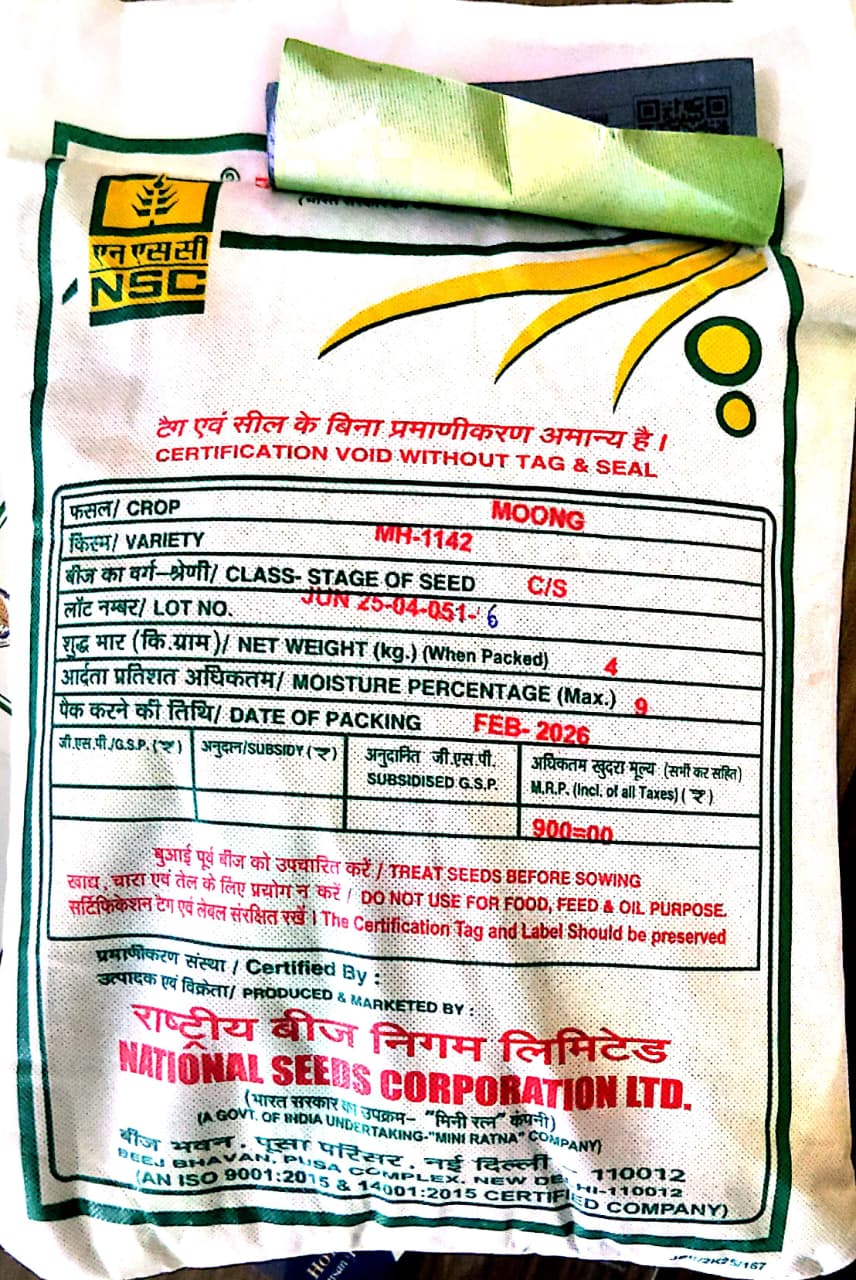 एन एस सी
NSC
®
टैग एवं सील के बिना प्रमाणीकरण अमान्य है।
CERTIFICATION VOID WITHOUT TAG & SEAL
फसल/ CROP MOONG
किस्म/ VARIETY MH-1142
बीज का वर्ग-श्रेणी/ CLASS- STAGE OF SEED C/S
लॉट नम्बर/ LOT NO. JUN 25-04-051- 6
शुद्ध भार (कि.ग्राम)/ NET WEIGHT (kg.) (When Packed) 4
आर्दता प्रतिशत अधिकतम/ MOISTURE PERCENTAGE (Max.) 9
पैक करने की तिथि/ DATE OF PACKING FEB- 2026
जी.एस.पी./G.S.P. (₹) अनुदान/SUBSIDY (₹) अनुदानित जी.एस.पी. अधिकतम खुदरा मूल्य (सभी कर सहित)
SUBSIDISED G.S.P. M.R.P. (Incl. of all Taxes) (₹)
900=00
बुआई पूर्व बीज को उपचारित करें / TREAT SEEDS BEFORE SOWING
खाद्य, चारा एवं तेल के लिए प्रयोग न करें / DO NOT USE FOR FOOD, FEED & OIL PURPOSE.
सर्टिफिकेशन टैग एवं लेबल संरक्षित रखें। The Certification Tag and Label Should be preserved
प्रमाणीकरण संस्था / Certified By :
उत्पादक एवं विक्रेता/ PRODUCED & MARKETED BY :
राष्ट्रीय बीज निगम लिमिटेड
NATIONAL SEEDS CORPORATION LTD.
(भारत सरकार का उपक्रम- "मिनी रत्न" कंपनी)
(A GOVT. OF INDIA UNDERTAKING-"MINI RATNA" COMPANY)
बीज भवन, पूसा परिसर, नई दिल्ली - 110012
BEEJ BHAVAN, PUSA COMPLEX, NEW DELHI-110012
(AN ISO 9001:2015 & 14001:2015 CERTIFIED COMPANY)